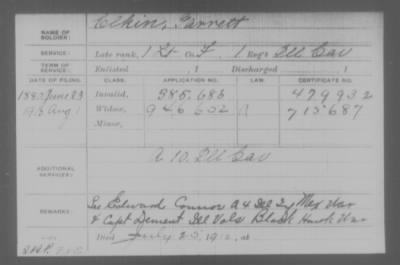 NAME OF SOLDIER: Elkin, Garrett
SERVICE: Late rank, 1 Lt Co. F, 1 Reg't Ill Cav
TERM OF SERVICE: Enlisted , 1 Discharged , 1
DATE OF FILING. CLASS. APPLICATION NO. LAW. CERTIFICATE NO.
1880 June 23 Invalid, 385.686 479932
Aug 1 Widow, 946.602 713.687
Minor,
A 10. Ill Cav
ADDITIONAL SERVICES:
REMARKS: Edward Connor A 4 Ill Inf Mex War
& Capt Dement Ill Vols Black Hawk War
Died July 25, 1910, at